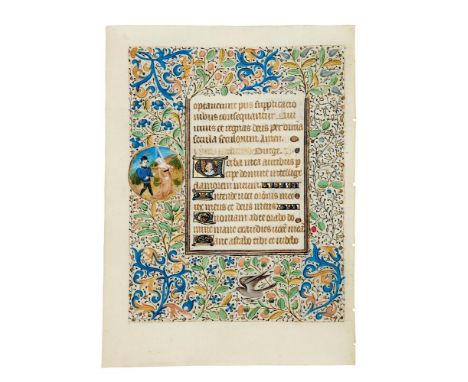 optaverunt piis supplicatio
nibus consequantur Qui
vivis et regnas deus per omnia
secula seculorum Amen
Dirige
Verba mea auribus per
cipe domine intellige
clamorem meum
Intende voci oracionis me
e rex meus et deus meus
Quoniam ad te orabo do
mine mane exaudies vocem mea
Mane astabo tibi et videbo